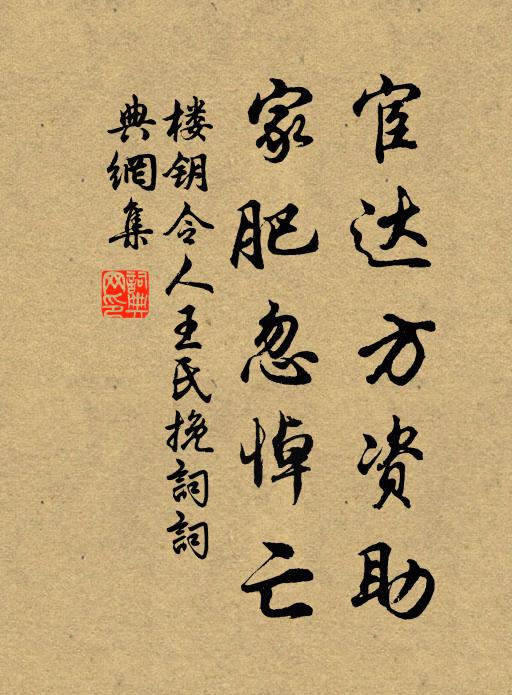 宦达方资助
家肥忽悼亡
楼钥令人王氏挽词词
典網集
詞典
网印